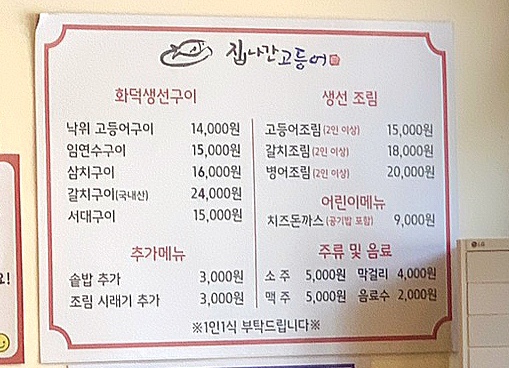 집나간고등어
화덕생선구이
낙위 고등어구이 14,000원
임연수구이 15,000원
삼치구이 16,000원
갈치구이(국내산) 24,000원
서대구이 15,000원
추가메뉴
솥밥 추가 3,000원
조림 시래기 추가 3,000원
생선 조림
고등어조림(2인 이상) 15,000원
갈치조림(2인 이상) 18,000원
병어조림(2인 이상) 20,000원
어린이메뉴
치즈돈까스(공기밥 포함) 9,000원
주류 및 음료
소 주 5,000원 막걸리 4,000원
맥 주 5,000원 음료수 2,000원
※1인1식 부탁드립니다※
LG